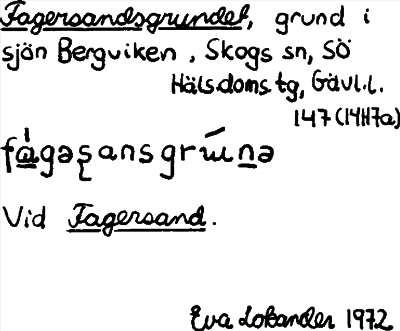 Fagersandsgrundet, grund i
sjön Bergviken, Skogs sn, SÖ
Häls.doms.tg, Gävl.l.
147 (14H7a)
fágəʂansgrɯ́nə
Vid Fagersand.
Eva Lokander 1972